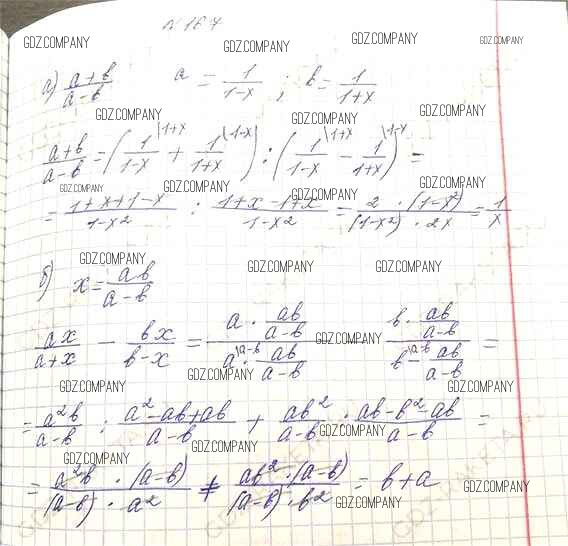 N 167
GDZ.COMPANY GDZ.COMPANY GDZ.COMPANY GDZ.COMPANY
а) (a+b)/(a-b) a = 1/(1-x) ; b = 1/(1+x)
GDZ.COMPANY GDZ.COMPANY
(a+b)/(a-b) = (1/(1-x) |1+x + 1/(1+x) |1-x) : (1/(1-x) |1+x - 1/(1+x) |1-x) =
GDZ.COMPANY GDZ.COMPANY GDZ.COMPANY GDZ.COMPANY
= (1+x+1-x)/(1-x²) : (1+x-1+x)/(1-x²) = (2·(1-x²))/((1-x²)·2x) = 1/x
GDZ.COMPANY GDZ.COMPANY GDZ.COMPANY
б) x = ab/(a-b)
ax/(a+x) - bx/(b-x) = (a · ab/(a-b))/(a |a-b · ab/(a-b)) (b · ab/(a-b))/(b |a-b - ab/(a-b)) =
GDZ.COMPANY
GDZ.COMPANY GDZ.COMPANY
= a²b/(a-b) : (a²-ab+ab)/(a-b) + ab²/(a-b) · (ab-b²-ab)/(a-b) =
GDZ.COMPANY GDZ.COMPANY GDZ.COMPANY
= (a²b·(a-b))/((a-b)·a²) + (ab²·(a-b))/((a-b)·b²) = b+a
GDZ.COMPANY GDZ.COMPANY